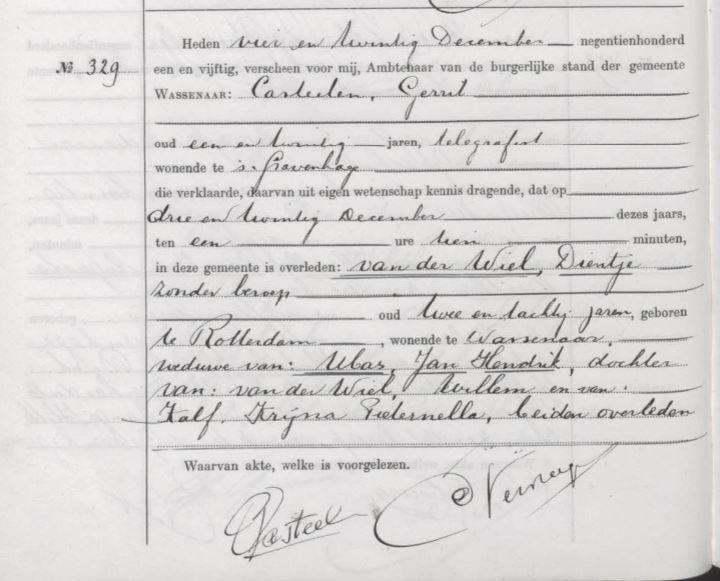 Heden vier en twintig December negentienhonderd
№ 329 een en vijftig, verscheen voor mij, Ambtenaar van de burgerlijke stand der gemeente
WASSENAAR: Casteelen, Gerrit
oud een en twintig jaren, telegrafist
wonende te 's-Gravenhage
die verklaarde, daarvan uit eigen wetenschap kennis dragende, dat op
drie en twintig December dezes jaars,
ten een ure tien minuten,
in deze gemeente is overleden: van der Wiel, Dientje
zonder beroep
oud twee en tachtig jaren, geboren
te Rotterdam, wonende te Wassenaar,
weduwe van: Ubas, Jan Hendrik, dochter
van: van der Wiel, Willem en van:
Kalf, Krijna Pieternella, beiden overleden
Waarvan akte, welke is voorgelezen.